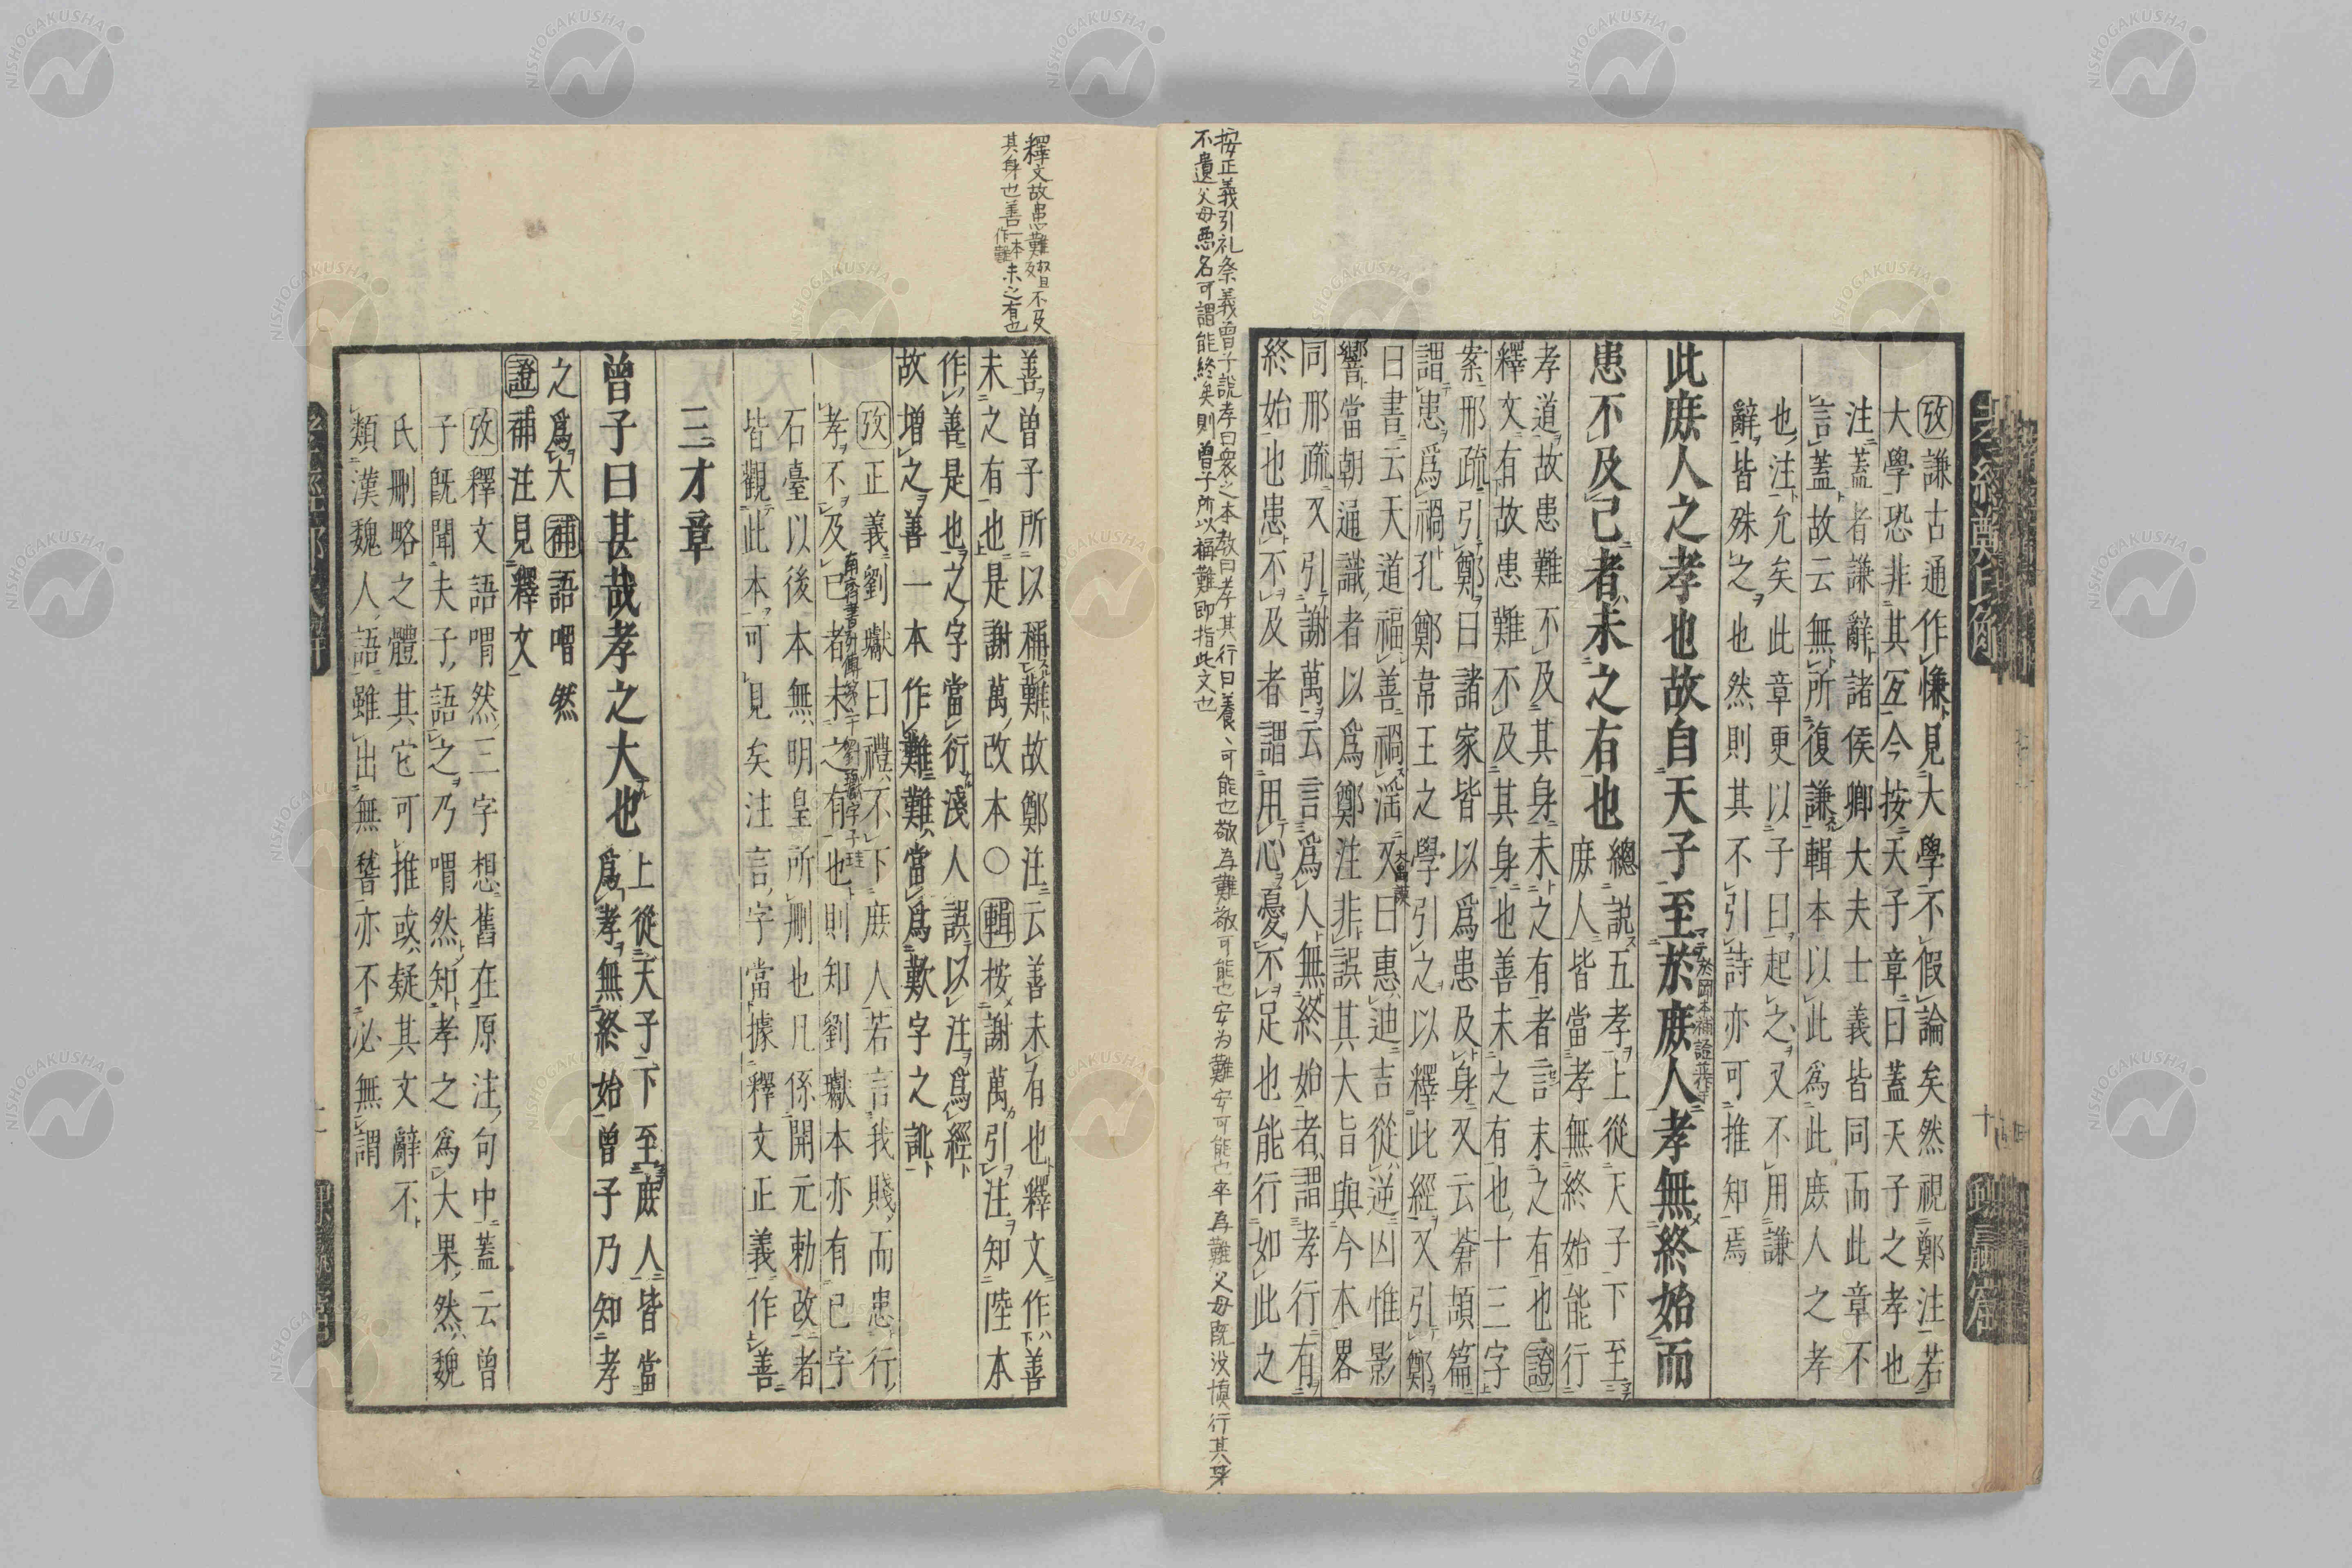 攷謙古通作慊見大學不假論矣然視鄭注若
大學恐非其互今按天子章曰蓋天子之孝也
注蓋者謙辭諸侯卿大夫士義皆同而此章不
言蓋故云無所復謙輯本以此爲此庶人之孝
也注允矣此章更以子曰起之又不用謙
辭皆殊之也然則其不引詩亦可推知焉
此庶人之孝也故自天子至於庶人孝無終始而
患不及己者未之有也
總說五孝上從天子下至
庶人皆當孝無終始能行
孝道故患難不及其身未之有者言未之有也證
釋文有故患難不及其身也善未之有也十三字
案邢疏引鄭曰諸家皆以爲患及身又云蒼頡篇
謂患爲禍孔鄭韋王之學引之以釋此經又引鄭
曰書云天道福善禍淫又曰惠迪吉從逆凶惟影
響當朝通識者以爲鄭注非誤其大旨與今本畧
同邢疏又引謝萬云言爲人無終始者謂孝行有
終始也患不及者謂用心憂不足也能行如此之
按正義引礼祭義曾子說孝曰衆之本教曰孝其行曰養、可能也敬為難敬可能也安为難安可能也卒為難父母既没慎行其身
不遺父母悪名可謂能終矣則曾子所以稱難即指此文也
釋文故患難不及
其身也善一本作難未之有也
善曾子所以稱難故鄭注云善未有也釋文作善
未之有也是謝萬改本○輯按謝萬引注知陸本
作善是也之字當衍淺人誤以注爲經
故增之善一本作難難當爲歎字之訛
攷正義劉瓛曰禮不下庶人若言我賤而患行
孝不及己者未之有也則知劉瓛本亦有已字
石臺以後本無明皇所刪也凡係開元勅改者
皆觀此本可見矣注言字當據釋文正義作善
三才章
曾子曰甚哉孝之大也
上從天子下至庶人皆當
爲孝無終始曾子乃知孝
之爲大補語喟然
證補注見釋文
攷釋文語喟然三字想舊在原注句中蓋云曾
子既聞夫子語之乃喟然知孝之爲大果然魏
氏刪略之體其它可推或疑其文辭不
類漢魏人語雖出無嶅亦不必無謂